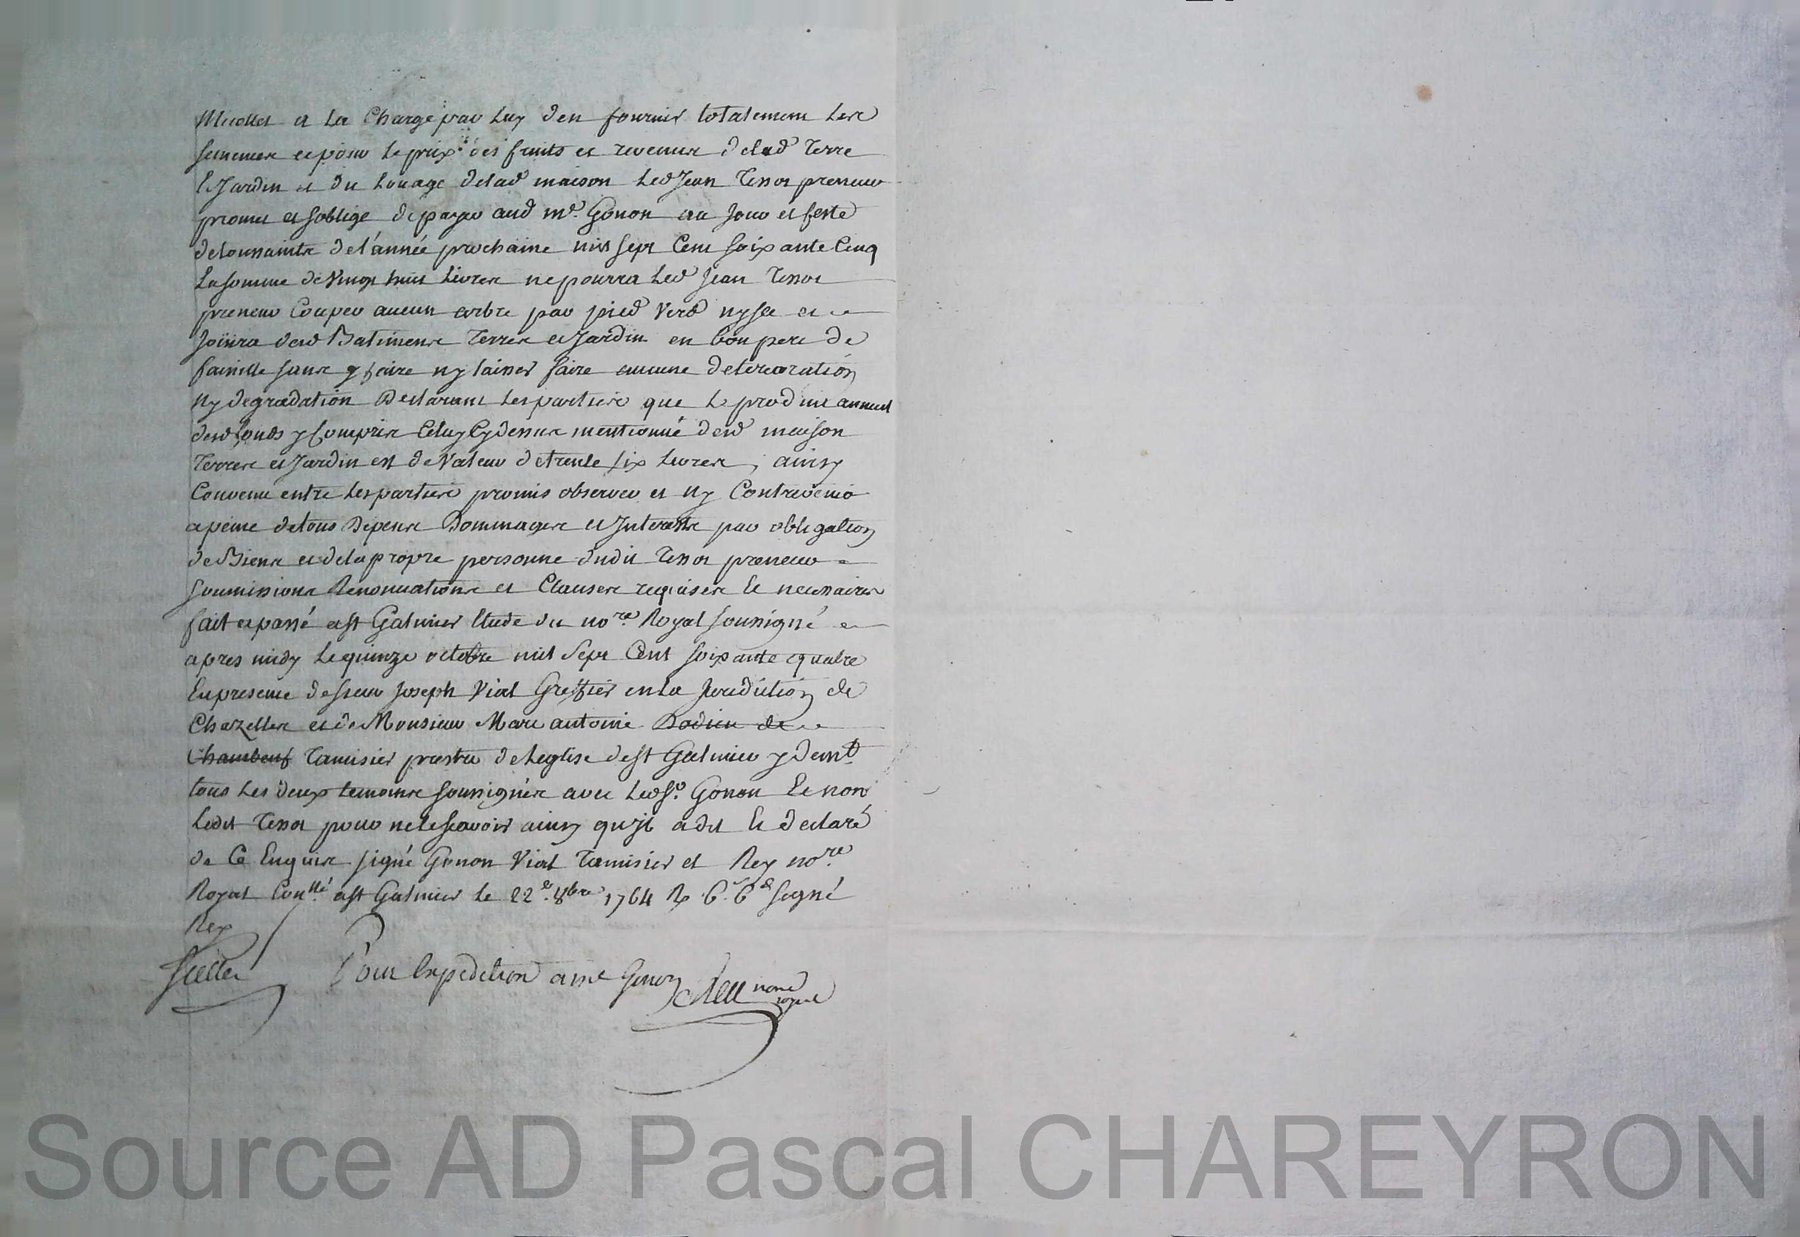 Micollet et la Charge par Luy d'en fournir totalement Les
semences et pour le prix des fruits et revenus de lad Terre
et Jardin et du Louage de lad maison Led Jean Tissot preneur
promet et soblige de payer aud me. Gonon au Jour et feste
de toussaints de l'année prochaine mil sept Cent soixante Cinq
La somme de Vingt huit Livres ne pourra Led Jean Tissot
preneur Couper aucun arbre par pied Verd ny sec et
Joüira desd Batiments Terres et Jardin en bon pere de
famille sans y faire ny laisser faire aucune deterioration
Ny degradation Declarant Les parties que Le produit annuel
desd fonds y Compris Celuy Cy dessus mentionné desd maison
Terres et Jardin est de Valeur de trente six Livres, ainsy
Convenu entre Les parties promis observer et Ny Contrevenir
a peine de tous Depens Dommages et Interests par obligation
de Biens et de la propre personne dudit Tissot preneur
soumissions Renonciations et Clauses requises et necessaires
fait et passé a st Galmier Etude du nore. Royal soussigné
apres midy Le quinze octobre mil sept Cent soixante quatre
En presence de sieur Joseph Vial Greffier en La Juridiction de
Chazelles et de Monsieur Marc antoine Bodien de
Chambeuf Tamisier prestre de L'eglise de st Galmier y demt
tous Les deux temoins soussignés avec Led sr. Gonon Et non
Ledit Tissot pour ne le scavoir ainsy qu'il a dit Et declaré
de Ce Enquis signé Gonon Vial Tamisier et Rey nore.
Royal Conllé. a st Galmier Le 22e. 8bre 1764 R 6s. 6d signé
Rey
scellé
Pour Expedition a me Gonon Rey nore
royal
Source AD Pascal CHAREYRON